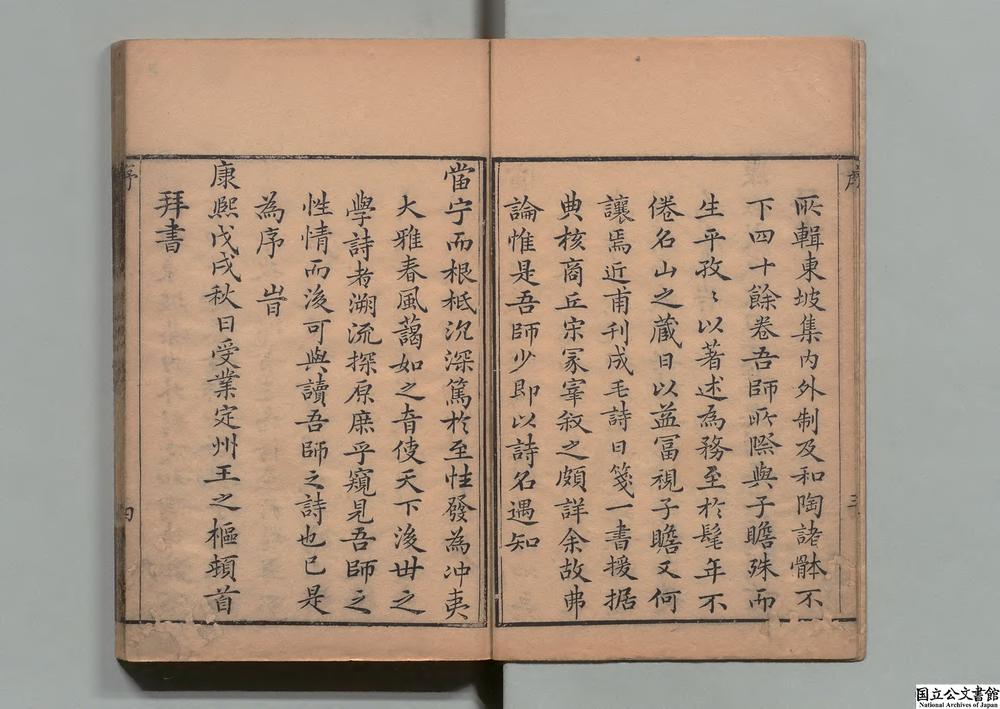 序
三
所輯東坡集内外制及和陶諸體不
下四十餘卷吾師所際與子瞻殊而
生平孜〻以著述為務至於髦年不
倦名山之蔵日以益冨視子瞻又何
讓焉近甫刊成毛詩日箋一書援据
典核商丘宋冡宰叙之頗詳余故弗
論惟是吾師少即以詩名遇知
當宁而根柢沉深篤於至性發為冲夷
大雅春風藹如之音使天下後丗之
學詩者溯流探原庶乎窺見吾師之
性情而後可與讀吾師之詩也已是
為序旹
康熙戊戌秋日受業定州王之樞頓首
拜書
序
四
国立公文書館
National Archives of Japan